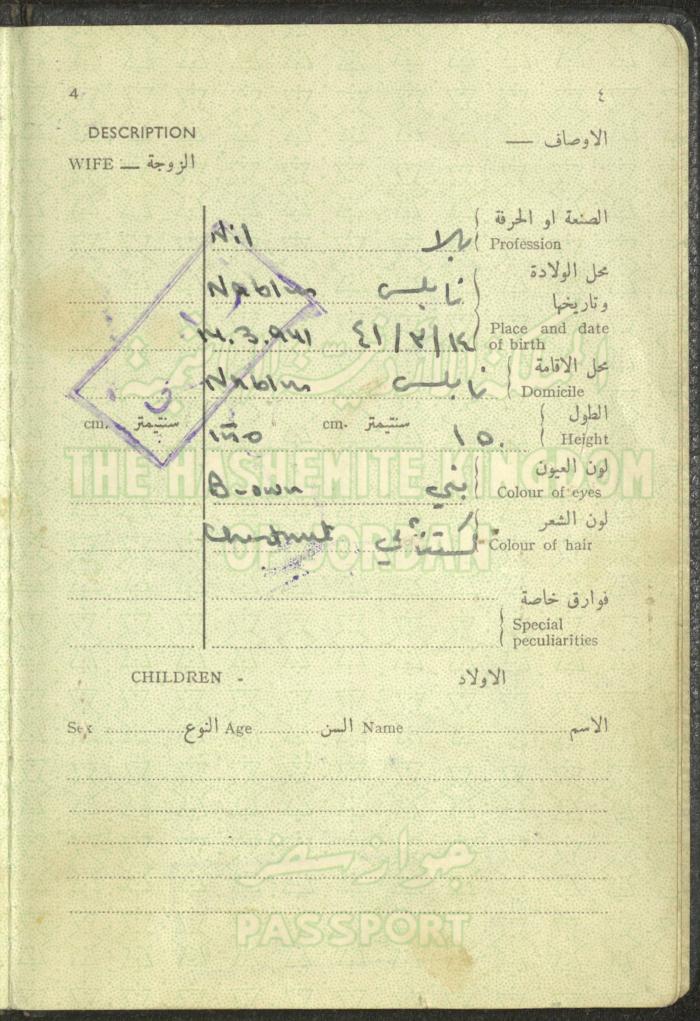 4 ٤
DESCRIPTION الاوصاف —
WIFE — الزوجة
الصنعة او الحرفة
Nil بلا Profession
محل الولادة
Nablus نابلس وتاريخها
14.3.941 ٤١/٣/١٤ Place and date of birth
محل الاقامة
Nablus نابلس Domicile
cm. سنتيمتر cm. سنتيمتر الطول
150 ١٥٠ Height
لون العيون
Brown بني Colour of eyes
لون الشعر
Chestnut كستنائي Colour of hair
فوارق خاصة
Special peculiarities
CHILDREN - الاولاد
Sex النوع Age السن Name الاسم
المملكة الاردنية الهاشمية
THE HASHEMITE KINGDOM
OF JORDAN
جواز سفر
PASSPORT